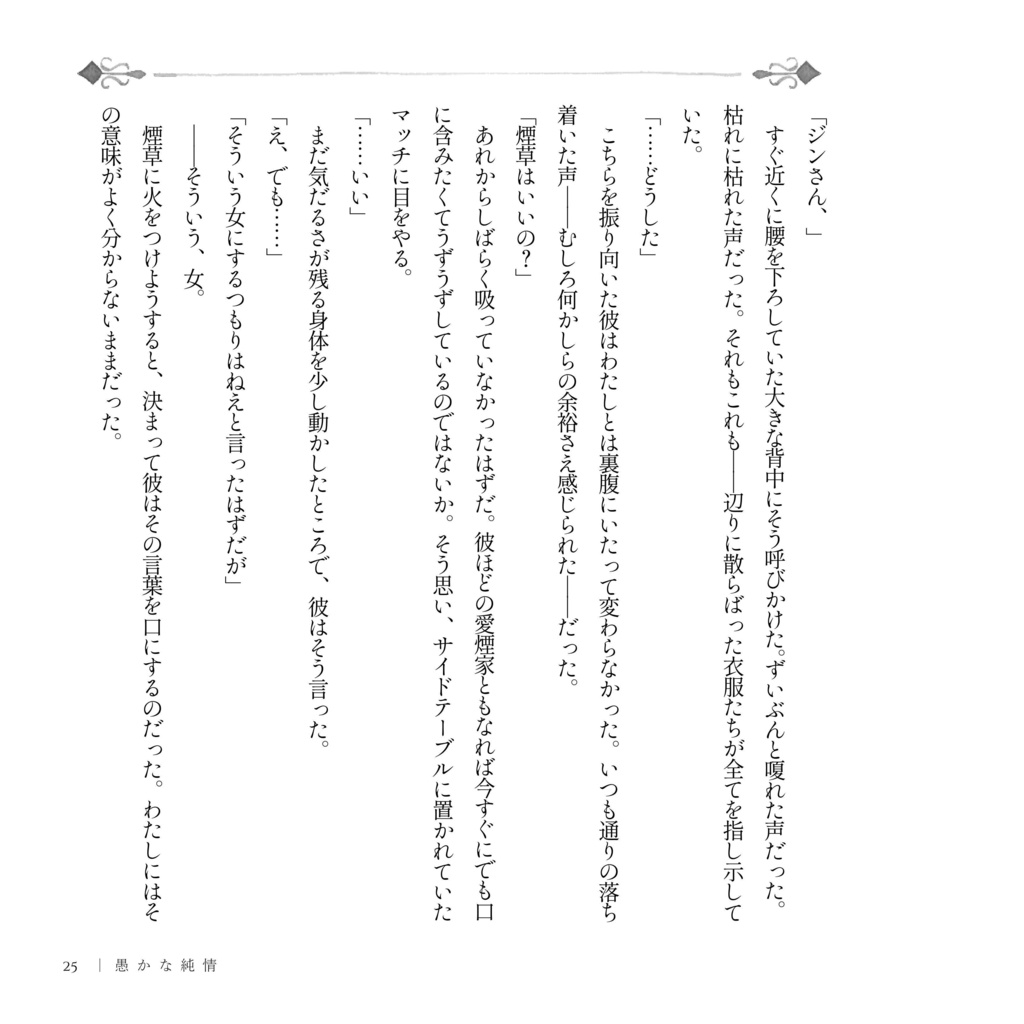 「ジンさん、」
すぐ近くに腰を下ろしていた大きな背中にそう呼びかけた。ずいぶんと嗄れた声だった。
枯れに枯れた声だった。それもこれも――辺りに散らばった衣服たちが全てを指し示して
いた。
「……どうした」
こちらを振り向いた彼はわたしとは裏腹にいたって変わらなかった。いつも通りの落ち
着いた声――むしろ何かしらの余裕さえ感じられた――だった。
「煙草はいいの?」
あれからしばらく吸っていなかったはずだ。彼ほどの愛煙家ともなれば今すぐにでも口
に含みたくてうずうずしているのではないか。そう思い、サイドテーブルに置かれていた
マッチに目をやる。
「……いい」
まだ気だるさが残る身体を少し動かしたところで、彼はそう言った。
「え、でも……」
「そういう女にするつもりはねえと言ったはずだが」
――そういう、女。
煙草に火をつけようすると、決まって彼はその言葉を口にするのだった。わたしにはそ
の意味がよく分からないままだった。
25 | 愚かな純情